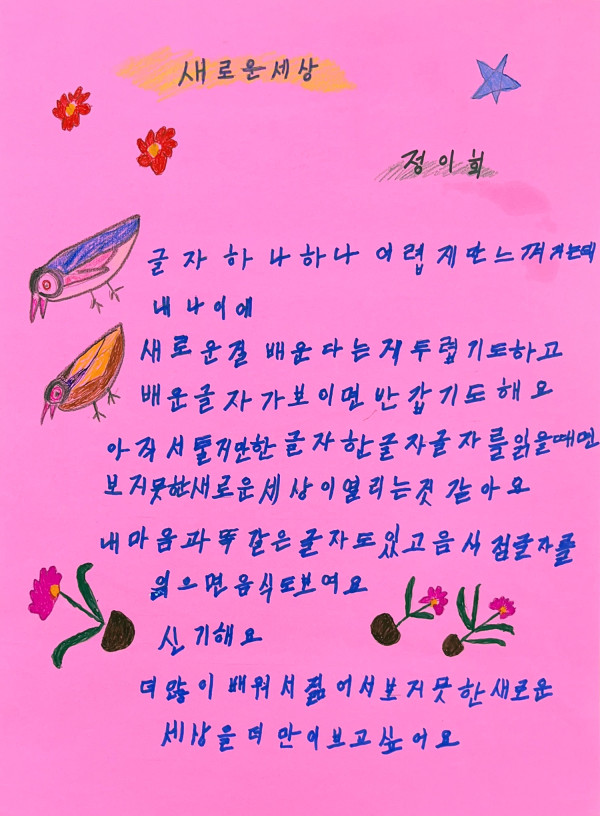 새로운세상
정이희
글자 하나하나 어렵지만 느껴지는데
내 나이에
새로운걸 배운다는게 두렵기도하고
배운글자가보이면 반갑기도 해요
아직서툴지만한글자한글자글자를읽을때면
보지못한새로운세상이열리는것 같아요
내마음과 똑같은글자도있고음식점글자를
읽으면음식도보여요
신기해요
더많이 배워서젊어서보지못한새로운
세상을 더 만이보고싶어요